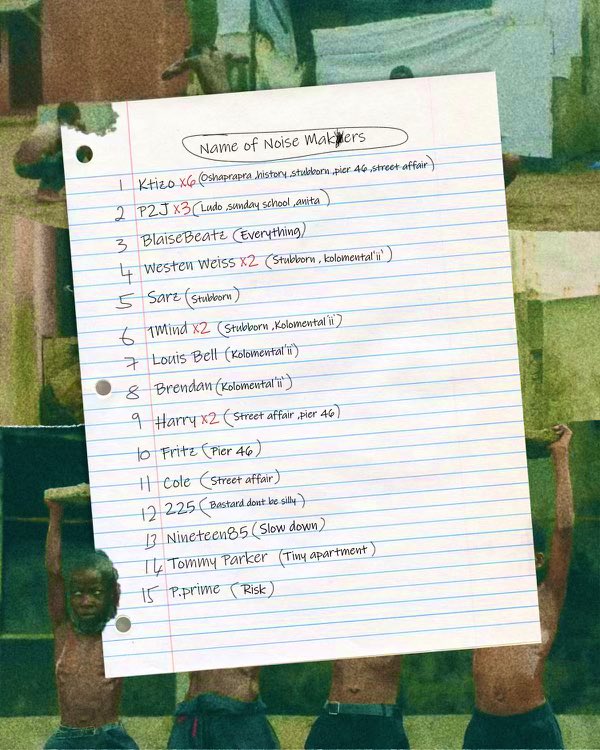 Name of Noise Makers
1 Ktizo x6 (Oshaprapra ,history ,stubborn ,pier 46 ,street affair)
2 P2J x3 (Ludo ,sunday school ,anita )
3 BlaiseBeatz (Everything)
4 Westen Weiss x2 (Stubborn , kolomental'ii')
5 Sarz (Stubborn)
6 1Mind x2 (Stubborn ,Kolomental'ii')
7 Louis Bell (Kolomental'ii)
8 Brendan (Kolomental'ii')
9 Harry x2 (Street affair ,pier 46)
10 Fritz (Pier 46)
11 Cole (Street affair)
12 225 (Bastard dont be silly)
13 Nineteen85 (Slow down)
14 Tommy Parker (Tiny apartment)
15 P.prime (Risk)